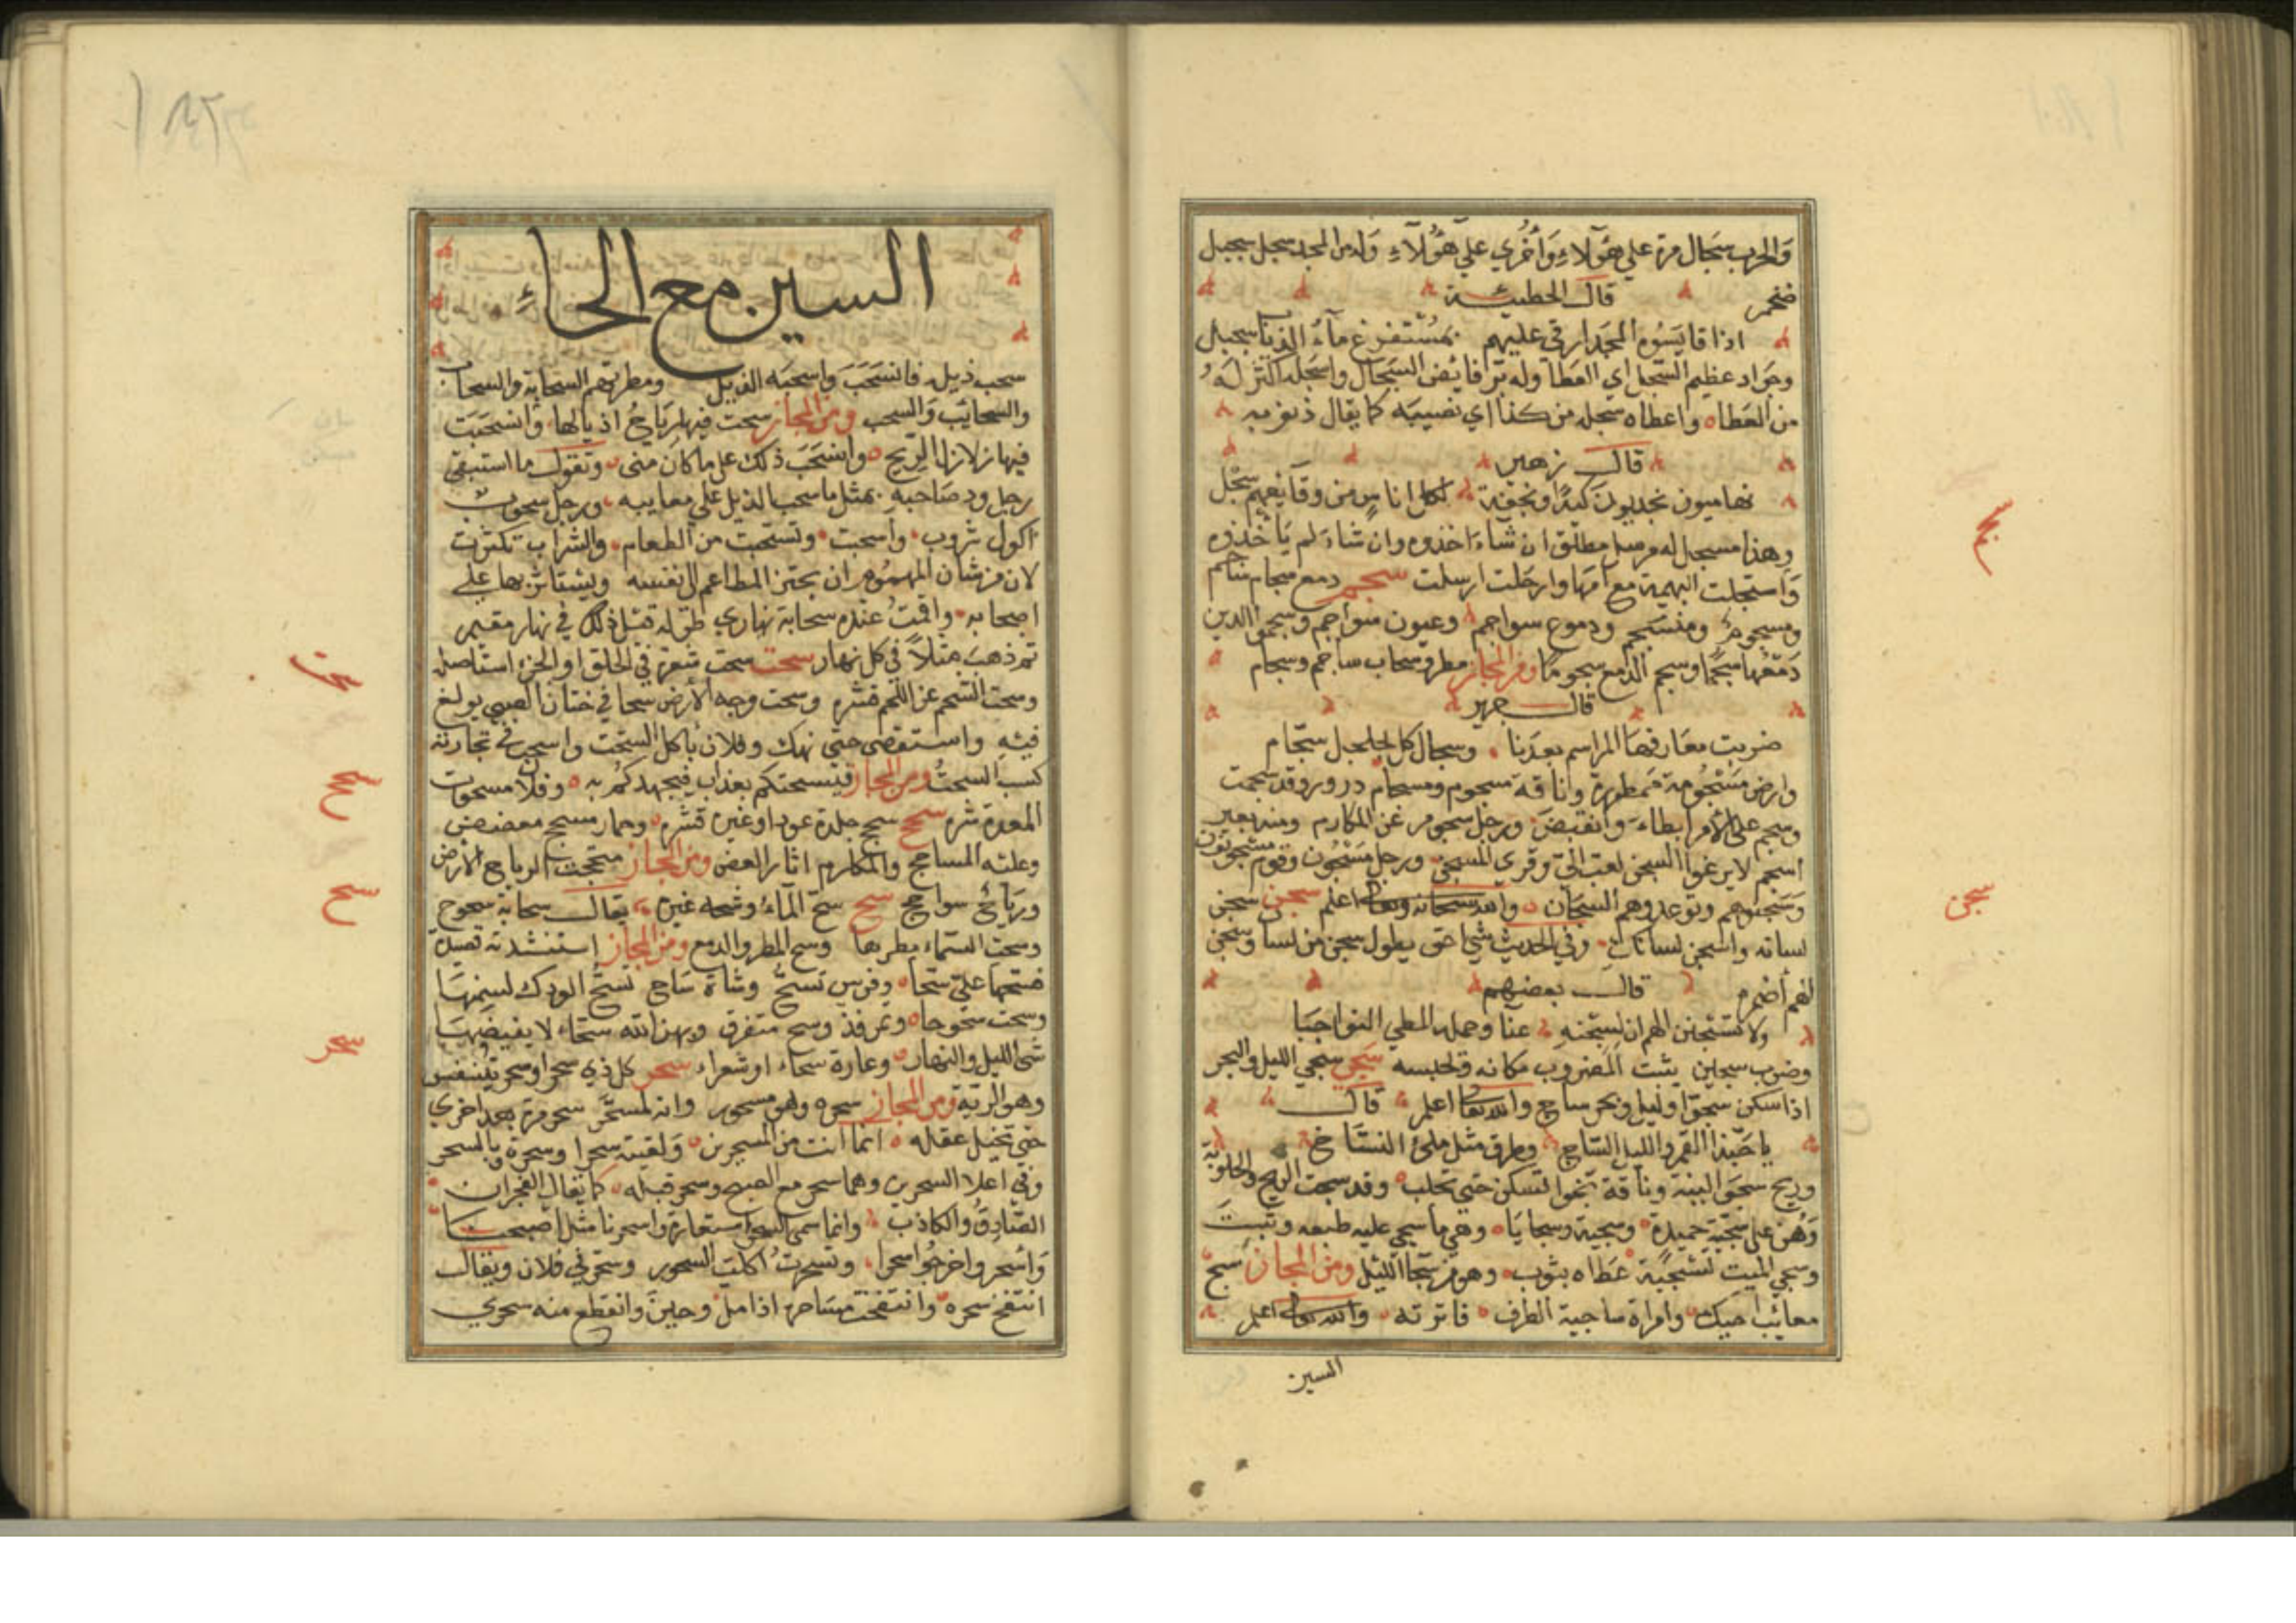 والحرب سجال مرة على هؤلاء وأخرى على هؤلاء وله من المجد سجل سجيل
ضخم قال الحطيئة
اذا قايسوه المجد اربى عليهم بمستفرغ ماء الذناب سجيل
وجواد عظيم السجل اي العطا وله بر فائض السجال واسجله اكثر له
من العطاه واعطاه سجله من كذا اي نصيبه كما يقال ذنوبه
قال زهير
تهاميون نجديون كيدا ونجعة لكل اناس من وقائعهم سجل
وهذا مسجل له مرسل مطلق ان شاء اخذوه وان شاء لم يأخذوه
واسجلت البهيمة مع امها وارحلت ارسلت سجم دمع سجام ساجم
ومسجوم ومنسجم ودموع سواجم وعيون سواجم وسجمت العين
دمعها سجما وسجم الدمع سجوما ومن المجاز مطر وسحاب ساجم وسجام
قال جرير
ضربت معارفها الرواسم بعدنا وسجال كل مجلجل سجام
وارض مسجومة ممطورة وناقة سجوم ومسجام درور وقد سجمت
وسجم على الأمر ابطاء وانقبض ورجل سجوم عن المكارم ومنه بعير
اسجم لا يرغو السجن احب الي وقرئ السجن ورجل مسجون وقوم مسجونون
وسجنوهم وتوعدوهم السجان والله سبحانه وتعالى اعلم سجن سجن
لسانه واسجن لسانك وفي الحديث شيء احق بطول سجن من لسان وسجن
الهم أضمره قال بعضهم
ولا تسجنن الهم ان لسجنه عنا وحمله المطي النواجيا
وضرب سجين يثبت المضروب مكانه ويحبسه سجي سجى الليل والبحر
اذا سكن سجوا وليل وبحر ساج والله تعالى اعلم قال
يا حبذا القمر والليل الساج وطرق مثل ملاء النساج
وريح سجواء لينة وناقة سجواء تسكن حتى تحلب وقد سجت الريح والحلوبة
وهن على سجية حميدة وسجية وسجايا وهي ما سجى عليه طبعه وثبت
وسجي الميت تسجية غطاه بثوب وهو من سجا الليل ومن المجاز سج
معائب اخيك وامرأة ساجية الطرف فاترته والله تعالى اعلم
السين
السين مع الحاء
سحب ذيله فانسحب واسحبه الذيل ومطرتهم السحابة والسحاب
والسحائب والسحب ومن المجاز سحبت فيها رياح اذيالها وانسحبت
فيها زلازل الريح وانسحب ذلك على ما كان مني وتقول ما استبقى
رجل ود صاحبه بمثل ما سحب الذيل على معايبه ورجل سحوب
اكول شروب واسحبت وتسحبت من الطعام والشراب تكثرت
لان من شان المنهوم ان يجتر المطاعم الى نفسه ويستاثر بها على
اصحابه واقمت عنده سحابة نهاري طوله قيل ذلك في نهار مغيم
ثم ذهب مثلا في كل نهار سحت سحت شعره في الحلق او الجز استاصله
وسحت الشحم عن اللحم قشره وسحت وجه الأرض سحا في ختان الصبي بولغ
فيه واستقصى حتى نهك وفلان يأكل السحت واسحت في تجارته
كسب السحت ومن المجاز فيسحتكم بعذاب فيجهدكم به وفلان مسحوت
المعدة شره سحج سحج جلده عود او غيره قشره وحمار مسحج معضض
وعليه المساحج والمكادم اثار العض ومن المجاز سحجت الرياح الأرض
ورياح سواحج سح سح الماء وسحه غيره يقال سحابة سحوح
وسحت السماء مطرها وسح المطر والدمع ومن المجاز استنشدته قصيدة
فسحها علي سحا وفرس تسح وشاة ساح تسح الودك لسمنها
وسحت سحوحا وتمر فذ وسح متفرق ويمين الله سحاء لا يغيضها
شيء الليل والنهار وغارة سحاء او شعراء سحر كل ذي سحر او سحر يتنفس
وهو الرئة ومن المجاز سحره وهو مسحور وانه لمسحر سحر مرة بعد اخرى
حتى تخبل عقله انما انت من المسحرين ولقيته سحرا وسحرة وبالسحر
وفي اعلا السحرين وهما سحر مع الصبح وسحر قبله كما يقال الفجران
الصادق والكاذب وانما سمي السحر استعارة واسحرنا مثل اصبحنا
واستحروا خرجوا سحرا وتسحرت اكلت السحور وسحرني فلان ويقال
انتفخ سحره وانتفخت مساحره اذا مل وجبن وانقطع منه سحري
سجم
سجن
سحت
سحج
سح
سحر